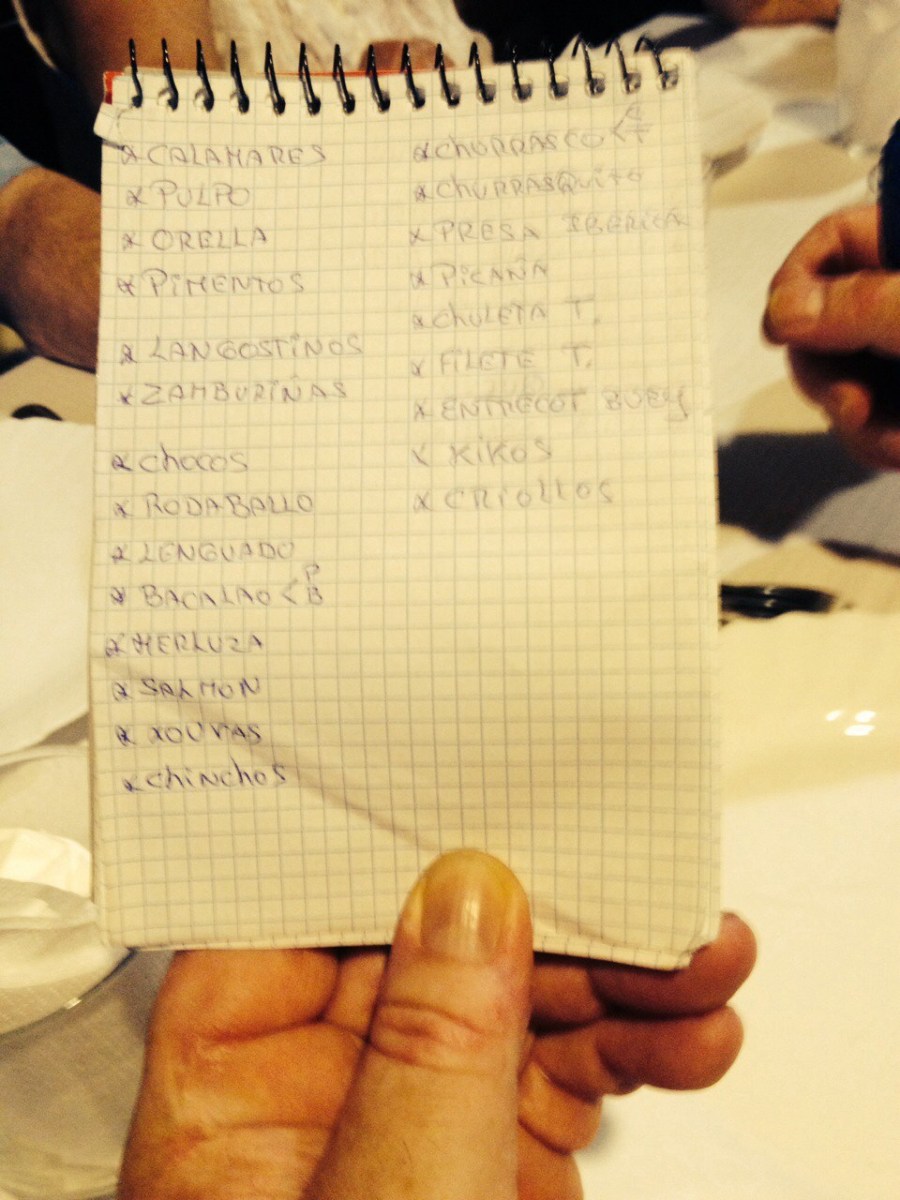 x CALAMARES
x PULPO
x ORELLA
x PIMENTOS
x LANGOSTINOS
x ZAMBURIÑAS
x chocos
x RODABALLO
x LENGUADO
x BACALAO < P B
x MERLUZA
x SALMON
x XOUVAS
x chiNchoS
x chURRASCO <
x chURRASQUITO
x PRESA IBERICA
x PICAÑA
x chULETA T.
x FILETE T.
x ENTRECOT BUEY
x KIKOS
x CRIOLLOS